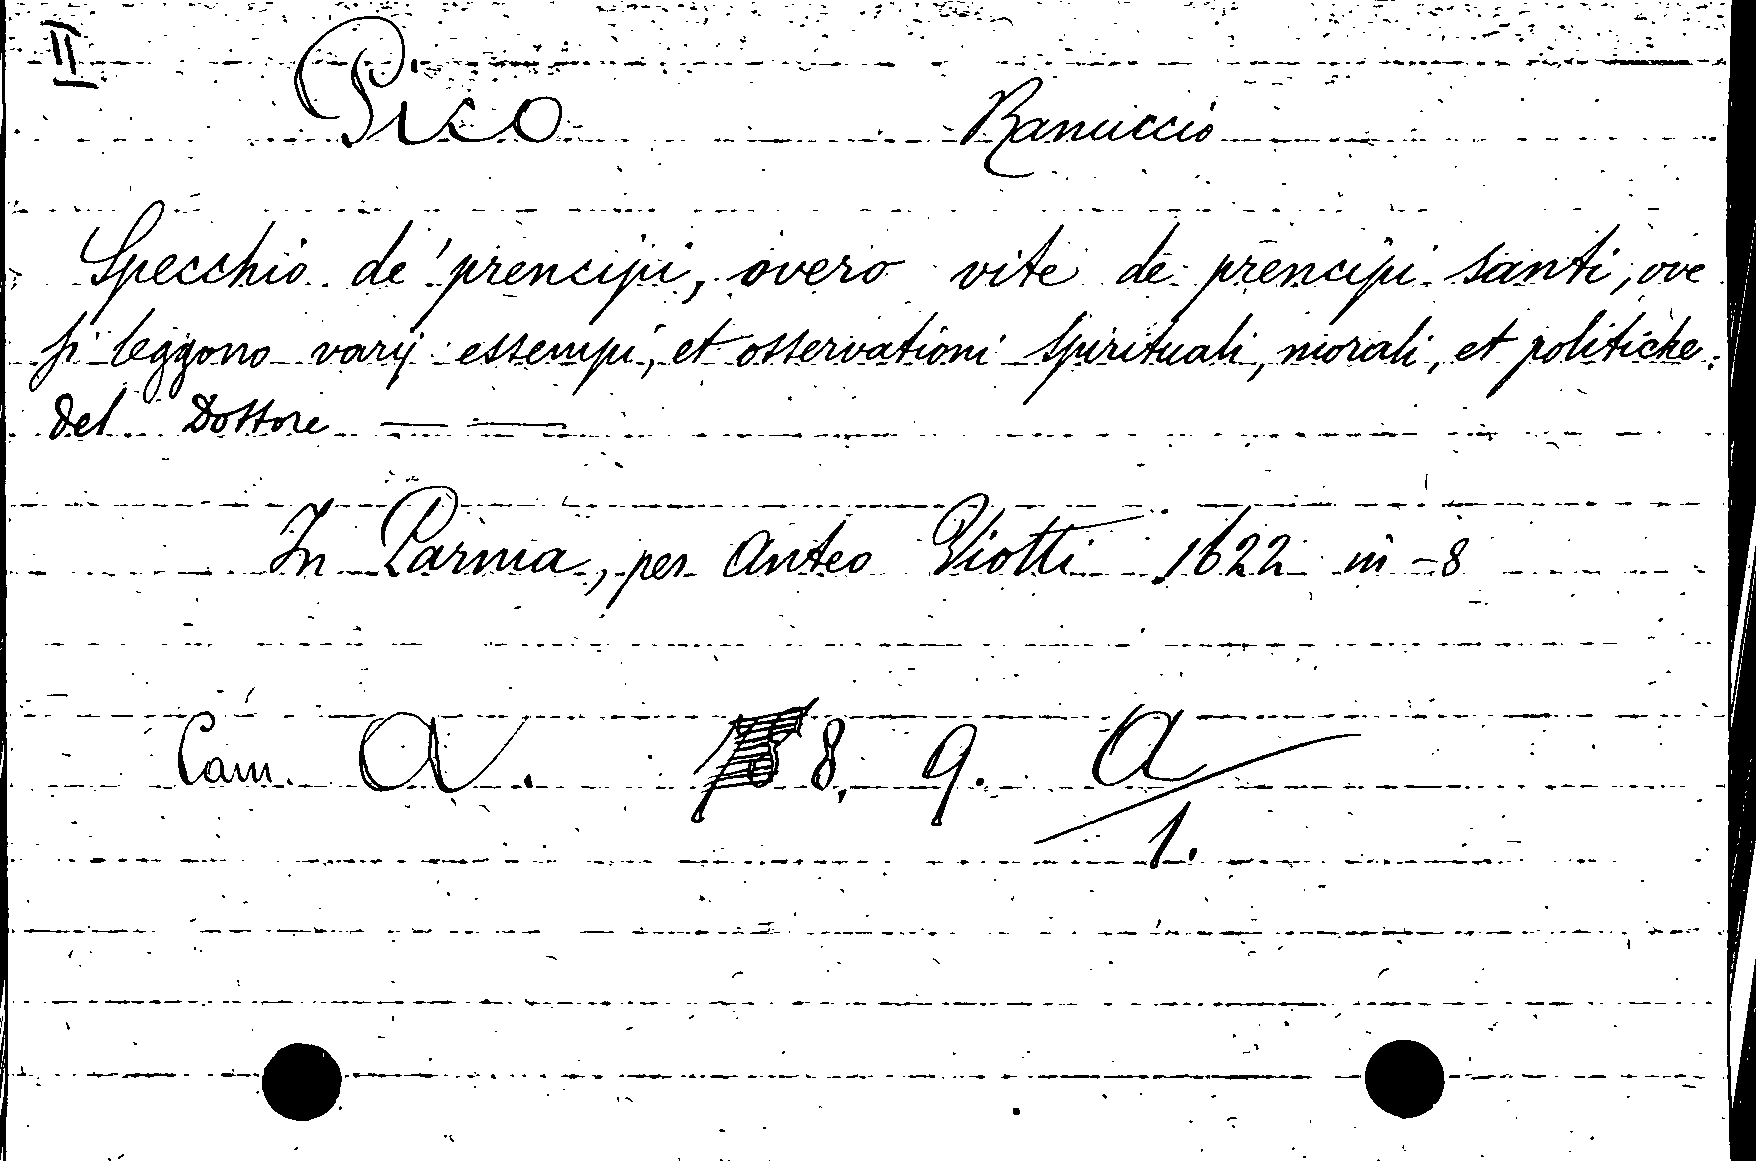 II
Pico Ranuccio
Specchio de' prencipi, overo vite de prencipi santi, ove
si leggono varij essempi, et osservationi spirituali, morali, et politiche.
Del Dottore — —
In Parma, per Anteo Viotti 1622 in-8
Cam. A. 8, 9. A/1.